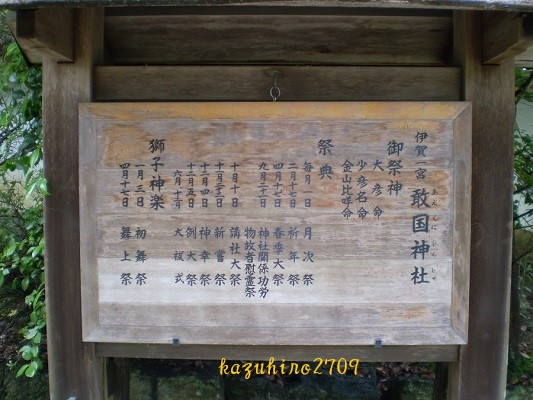 伊賀一宮 敢国神社
あえくにじんじゃ
御祭神
大彦命
少彦名命
金山比咩命
祭典
毎月一日 月次祭
二月十七日 祈年祭
四月十七日 春季大祭
九月二十日 神社関係功労物故者慰霊祭
十月十日 講社大祭
十月二十三日 新嘗祭
十二月四日 神幸祭
十二月五日 例大祭
六月・十二月 大祓式
獅子神楽
一月三日 初舞祭
四月十七日 舞上祭
kazuhiro2709